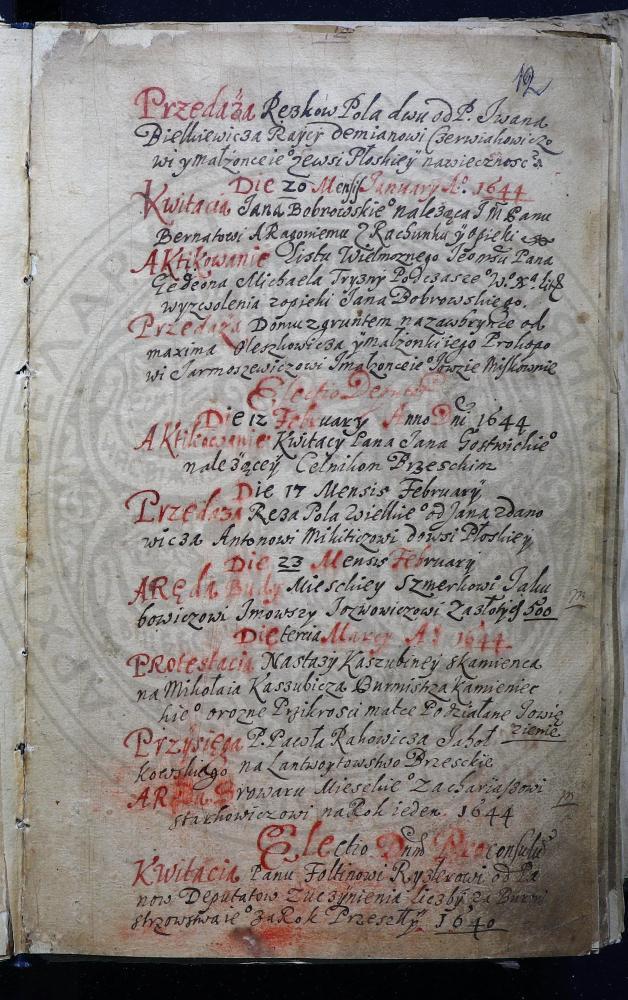 12
Przedaża Rezkow Pola dwu od P. Iwana
Bielkiewicza Raycy Demianowi Czerwiakowiczo
wi y małżonce ie° zewsi Płoskiey na wieczność
Die 20 Mensis January A° 1644
Kwitacia Jana Bobrowskie° należąca J M Panu
Bernatowi ARagoniemu z Rachunku y opieki
AKtikowanie Listu Wielmoznego Jeomści Pana
Gedeona Michaela Tryzny Podczasze° W° X° Lit
wyzwolenia z opieki Jana Dobrowskiego.
Przedaża Domu z gruntem na zawbrytce od
maxima Oleszkowicza y małżonki iego Prokopo
wi Jarmoszewiczowi J małżonce ie° Jowzie Miskownie
Electio Deput
Die 12 February Anno Dni 1644
AKtikowanie Kwitacy Pana Jana Gostwickie°
należącey Celnikom Brzeskim
Die 17 Mensis February
Przedaża Reza Pola Wielkie° od Jana Zdano
wicza Antonowi Mikiticzowi do wsi Płoskiey
Die 23 Mensis February
ARęda Budy Mieskiey Szmerkowi Jaku
bowiczowi J mowszy Jozwowiczowi Za złotych 500
Die tercia Marcy A° 1644
PRotestacia Nastazy Kaszubiney z kamienca
na Mikołaia Kaszubicza Burmistrza Kamieniec
kie° o rozne Przikrosci matce Podziałane Jowię
ziemie
Przysięga P. Pawła Rakowicza Jabol
kowskiego na Lantwoytowstwo Brzeskie
ARęda Browaru Mieskie° Zachariaszowi
starkowiczowi na Rok ieden 1644
Electio Dnm Proconsulu
Kwitacia Panu Foltinowi Ryzlerowi od Pa
now Deputatow Zuczynienia liczby za Burmi
strzowstwa ie° za Rok Przeszły 1640